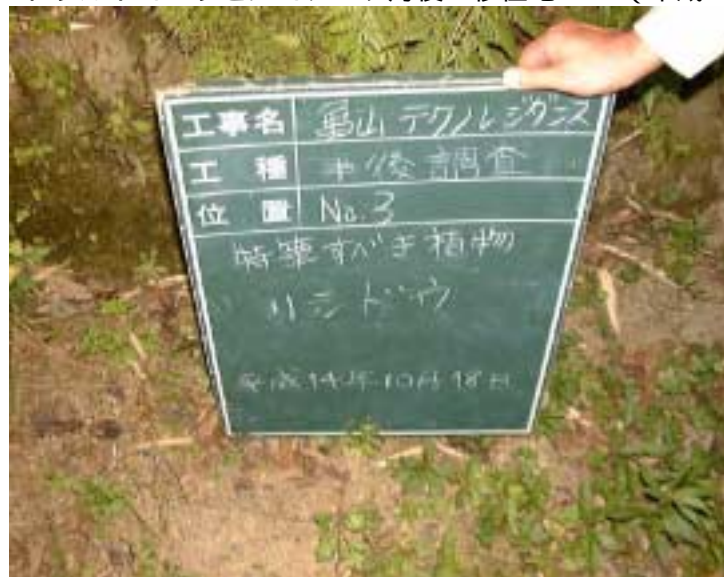 工事名 亀山テクノレジデンス
工種 事後調査
位置 No.3
特筆すべき植物
リンドウ
平成14年10月18日